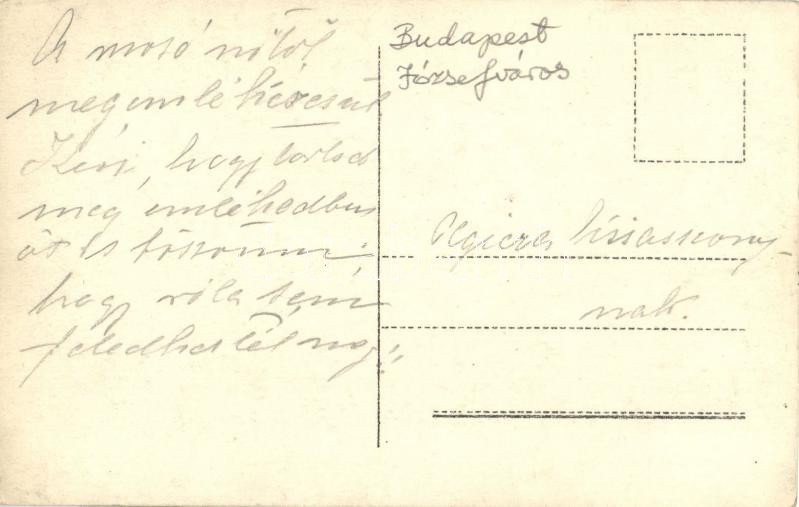 A mosó nőtől
megemlékezésül
Kéri, hogy tartsd
meg emlékedben
őt is köszönni
hogy róla sem
feledkeztél meg!
Budapest
Józsefváros
kisasszony-
nak.